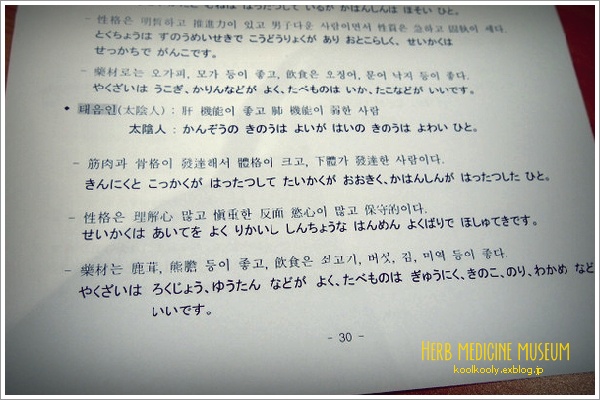 - 性格은 明哲하고 推進力이 있고 男子다운 사람이면서 性質은 急하고 固執이 세다.
とくちょうは すのうめいせきで こうどうりょくが あり おとこらしく、せいかくは
せっかちで がんこです。
- 藥材로는 오가피, 모가 등이 좋고, 飮食은 오징어, 문어 낙지 등이 좋다.
やくざいは うこぎ、かりんなどが よく、たべものは いか、たこなどが いいです。
• 태음인(太陰人) : 肝 機能이 좋고 肺 機能이 弱한 사람
太陰人 : かんぞうの きのうは よいが はいの きのうは よわい ひと。
- 筋肉과 骨格이 發達해서 體格이 크고, 下體가 發達한 사람이다.
きんにくと こっかくが はったつして たいかくが おおきく、かはんしんが はったつした ひと。
- 性格은 理解心 많고 愼重한 反面 慾心이 많고 保守的이다.
せいかくは あいてを よく りかいし しんちょうな はんめん よくばりで ほしゅてきです。
- 藥材는 鹿茸, 熊膽 등이 좋고, 飮食은 쇠고기, 버섯, 김, 미역 등이 좋다.
やくざいは ろくじょう、ゆうたん などが よく、たべものは ぎゅうにく、きのこ、のり、わかめ など
いいです。
- 30 -
HERB MEDICINE MUSEUM
koolkooly.exblog.jp